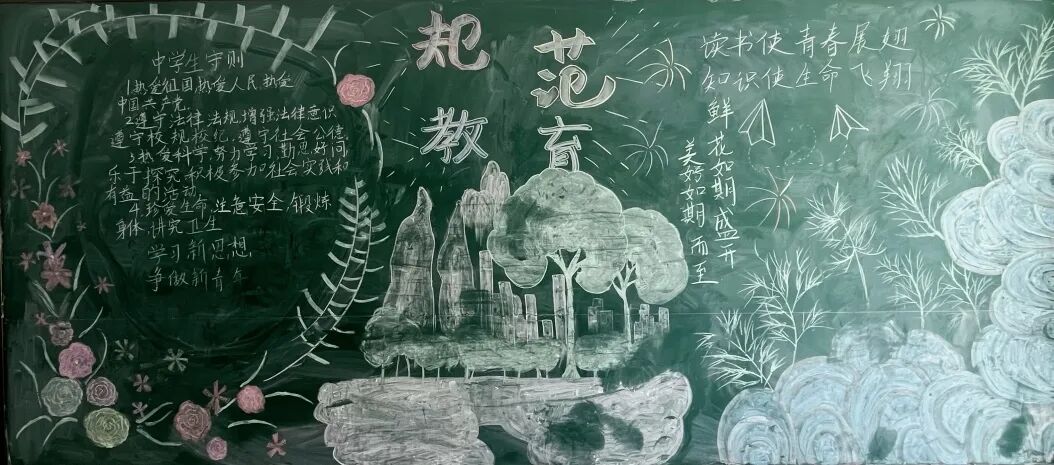 中学生守则
1.热爱祖国,热爱人民,热爱
中国共产党.
2.遵守法律法规,增强法律意识
遵守校规校纪,遵守社会公德
3.热爱科学,努力学习,勤思好问
乐于探究,积极参加社会实践和
有益的活动.
4.珍爱生命,注意安全,锻炼
身体,讲究卫生
学习新思想
争做新青年
规范
教育
读书使青春展翅
知识使生命飞翔
鲜花如期盛开
美好如期而至